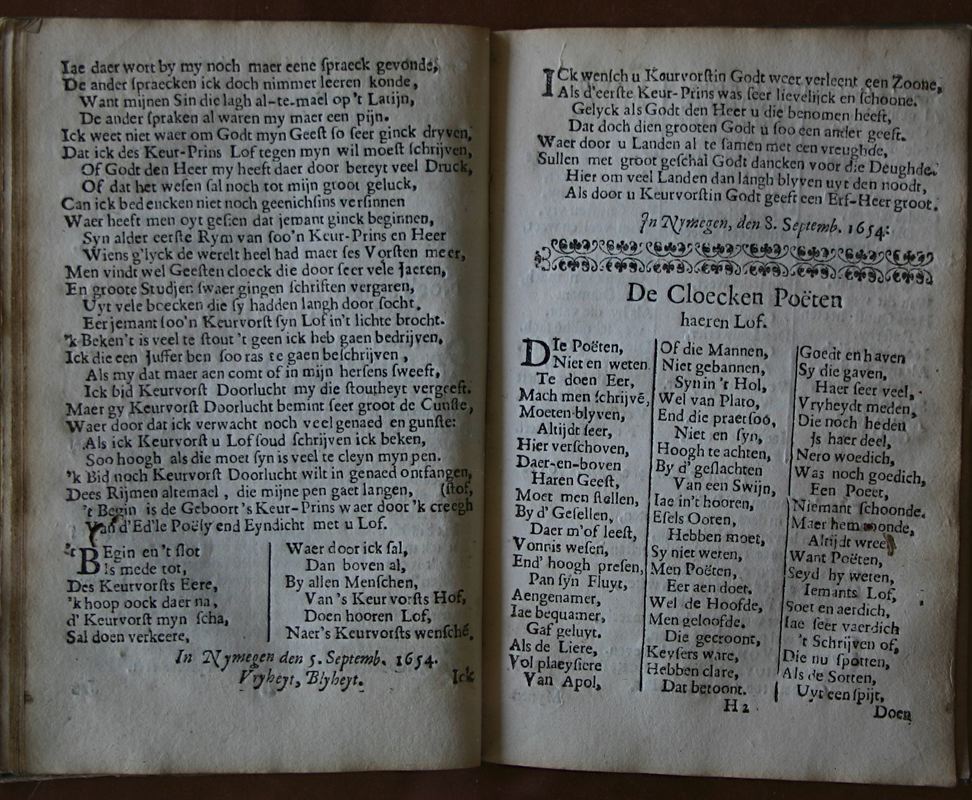 Iae daer wort by my noch maer eene spraeck gevonde,
De ander spraecken ick doch nimmer leeren konde,
Want mijnen Sin die lagh al-te-mael op't Latijn,
De ander spraken al waren my maer een pijn.
Ick weet niet waer om Godt myn Geest so seer ginck dryven,
Dat ick des Keur-Prins Lof tegen myn wil moest schrijven,
Of Godt den Heer my heeft daer door bereyt veel Druck,
Of dat het wesen sal noch tot mijn groot geluck,
Can ick bedencken niet noch geenichsins versinnen
Waer heeft men oyt gesien dat jemant ginck beginnen,
Syn alder eerste Rym van soo'n Keur-Prins en Heer
Wiens g'lyck de werelt heel had maer ses Vorsten meer,
Men vindt wel Geesten cloeck die door seer vele Jaeren,
En groote Studjen swaer gingen schriften vergaren,
Uyt vele boecken die sy hadden langh door socht.
Eer jemant soo'n Keurvorst syn Lof in't lichte brocht.
'k Beken't is veel te stout 't geen ick heb gaen bedrijven,
Ick die een Juffer ben soo ras te gaen beschrijven,
Als my dat maer aen comt of in mijn hersens sweeft,
Ick bid Keurvorst Doorlucht my die stoutheyt vergeeft.
Maer gy Keurvorst Doorlucht bemint seer groot de Cunste,
Waer door dat ick verwacht noch veel genaed en gunste:
Als ick Keurvorst u Lof soud schrijven ick beken,
Soo hoogh als die moet syn is veel te cleyn myn pen.
'k Bid noch Keurvorst Doorlucht wilt in genaed ontfangen,
Dees Rijmen altemael, die mijne pen gaet langen, (stof,
't Begin is de Geboort's Keur-Prins waer door 'k creegh
Van d'Ed'le Poësy end Eyndicht met u Lof.
't BEgin en 't slot
Is mede tot,
Des Keurvorsts Eere,
'k hoop oock daer na,
d' Keurvorst myn scha,
Sal doen verkeere,
Waer door ick sal,
Dan boven al,
By allen Menschen,
Van 's Keurvorsts Hof,
Doen hooren Lof,
Naer's Keurvorsts wensche,
In Nymegen den 5. Septemb. 1654.
Vryheyt, Blyheyt.
Ick
ICk wensch u Keurvorstin Godt weer verleent een Zoone,
Als d'eerste Keur-Prins was seer lievelijck en schoone.
Gelyck als Godt den Heer u die benomen heeft,
Dat doch dien grooten Godt u soo een ander geeft.
Waer door u Landen al te samen met een vreughde,
Sullen met groot geschal Godt dancken voor die Deughde.
Hier om veel Landen dan langh blyven uyt den noodt,
Als door u Keurvorstin Godt geeft een Erf-Heer groot.
In Nymegen, den 8. Septemb. 1654.
De Cloecken Poëten
haeren Lof.
DIe Poëten,
Niet en weten
Te doen Eer,
Mach men schrijvē,
Moeten blyven,
Altijdt seer,
Hier verschoven,
Daer-en-boven
Haren Geest,
Moet men stellen,
By d' Gesellen,
Daer m'of leest,
Vonnis wesen,
End' hoogh presen,
Pan syn Fluyt,
Aengenamer,
Iae bequamer,
Gaf geluyt.
Als de Liere,
Vol plaeysiere
Van Apol,
Of die Mannen,
Niet gebannen,
Syn in 't Hol,
Wel van Plato,
End die praet soo,
Niet en syn,
Hoogh te achten,
By d' geslachten
Van een Swijn,
Iae in't hooren,
Esels Ooren,
Hebben moet,
Sy niet weten,
Men Poëten,
Eer aen doet.
Wel de Hoofde,
Men geloofde.
Die gecroont,
Keysers ware,
Hebben clare,
Dat betoont.
Goedt en haven
Sy die gaven,
Haer seer veel,
Vryheydt meden,
Die noch heden
Is haer deel,
Nero woedich,
Was noch goedich,
Een Poeet,
Niemant schoonde,
Maer hem moonde,
Altijdt wreet
Want Poëten,
Seyd hy weten,
Iemants Lof,
Soet en aerdich,
Iae seer vaerdich
't Schrijven of,
Die nu spotten,
Als de Sotten,
Uyt een spijt,
H 2
Doen